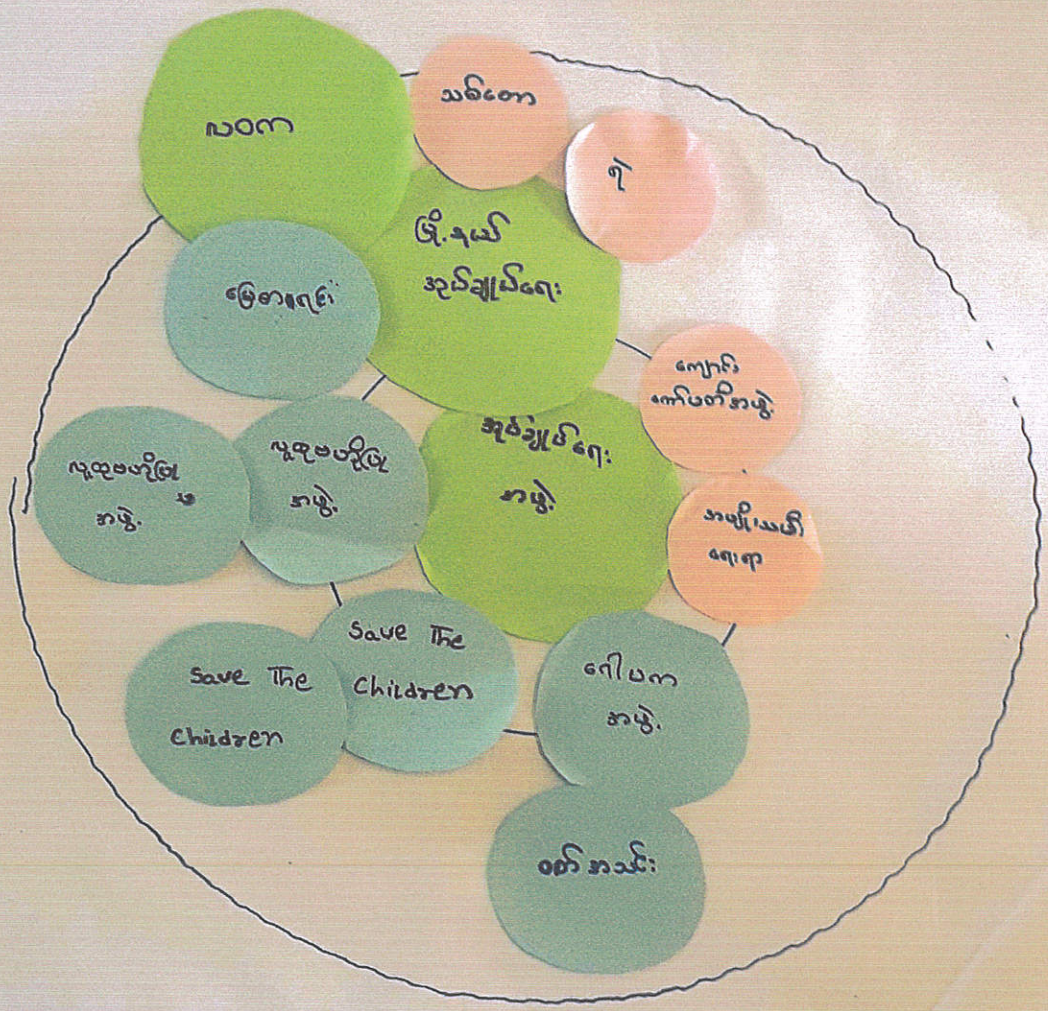 လဝက
သစ်တော
ရဲ
မြို့နယ်
အုပ်ချုပ်ရေး
မြေစာရင်း
ကျောင်း
ကော်မတီအဖွဲ့
အုပ်ချုပ်ရေး
အဖွဲ့
လူထုဗဟိုပြု
အဖွဲ့
လူထုဗဟိုပြုမှု
အဖွဲ့
အမျိုးသမီး
ရေးရာ
Save The
Children
Save The
Children
ဂေါပက
အဖွဲ့
ဝတ်အသင်း